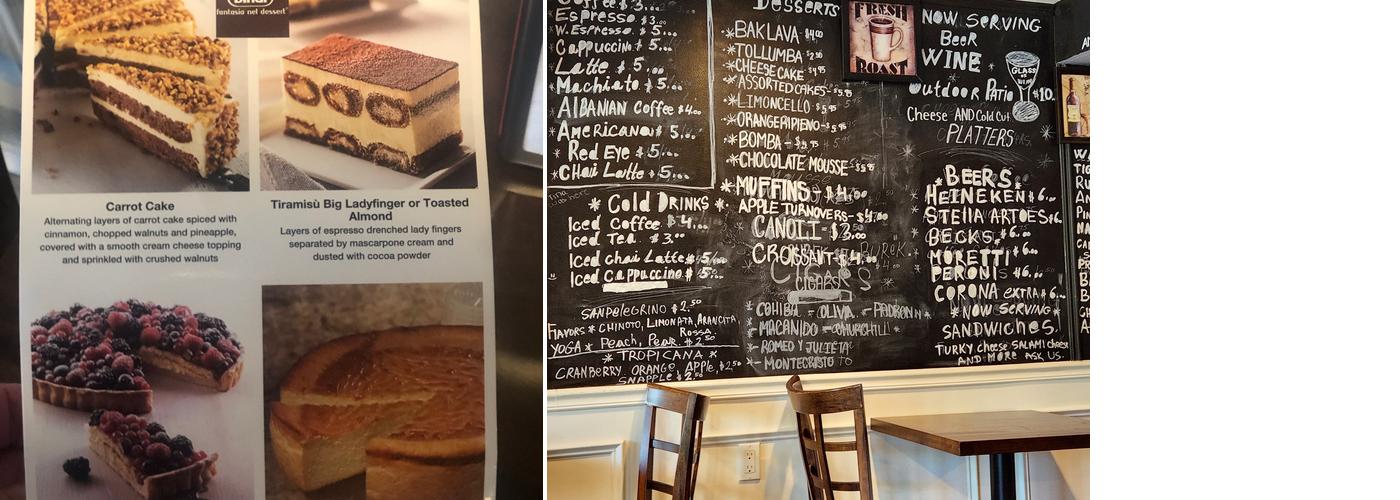 fantasia nel dessert
Carrot Cake
Alternating layers of carrot cake spiced with
cinnamon, chopped walnuts and pineapple,
covered with a smooth cream cheese topping
and sprinkled with crushed walnuts
Tiramisù Big Ladyfinger or Toasted
Almond
Layers of espresso drenched lady fingers
separated by mascarpone cream and
dusted with cocoa powder
Coffee $3...
Espresso $3...
W. Espresso. $ 5...
Cappuccino $ 5...
Latte $ 5...
Machiato $ 5...
AlBANIAN Coffee $4.00
Americano $ 5...
Red Eye $ 5...
CHai Latte $ 5...
* Cold DRINKS *
Iced Coffee $4...
Iced Tea $3.00
Iced chai Latte $5...
Iced Cappuccino $ 5...
SANPELeGRINO $2.50
FlAVORS * CHINOTO, LIMONATA, ARANCITA,
ROSSA.
YOGA * Peach, Pear. $2.50
* TROPICANA *
CRANBERRY, ORANGE, APPLe, $2.50
SNAPPLE $2.50
Desserts
*BAKLAVA $4.00
*TOLLUMBA $2.50
*CHEESECAKE $4.95
*ASSORTED CAKES- $5.95
*LIMONCELLO - $5.95
*ORANGE RIPIENO- $5.95
*BOMBA - $5.95
*CHOCOLATE MOUSSE- $5.95
*MUFFINS - $4.00
APPLE TURNOVERS- $4.00
CANOLI - $3.00
CROSSANT- $4.00
CIGARS
*- COHIBA - OLIVA - PADRON
*- MACANIDO - CHURCHILL
*- ROMEO Y JULIETA
*- MONTECRISTO
FRESH
ROAST
NOW SERVING
BeeR
WINE
GLASS
OF
WINE
$10.
Outdoor Patio
Cheese AND Cold Cut
PLATTERS
BEERS
HEINEKEN $6...
STEllA ARTOES $6..
BECKS. $6...
MORETTI $6...
PERONI $6...
CORONA exTRA $6...
*NOW SERVING*
SANDWICHeS.
TURKY cheese SALAMI cheese
AND MORE ASK US.